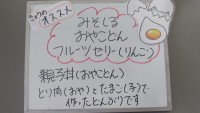 きょうのオススメ
みそしる
おやことん
フルーツゼリー(りんご)
親子丼(おやことん)
とり肉(おや)とたまご(子)で
作ったとんぶりです